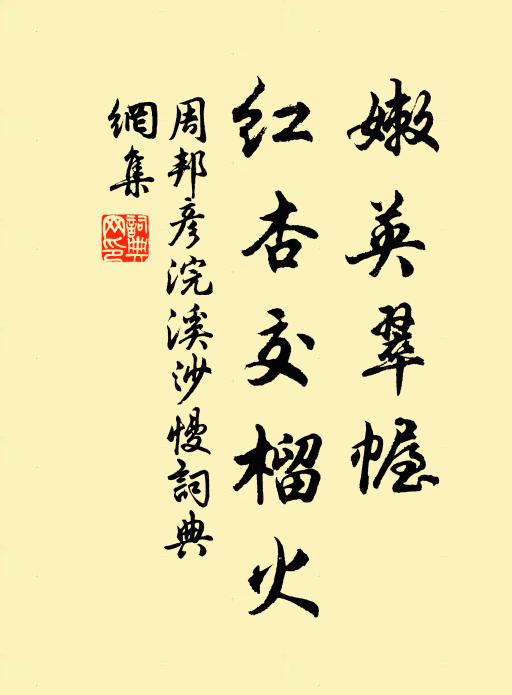 嫩英翠幄
红杏交榴火
周邦彦浣溪沙慢詞典
網集
詞典
网印